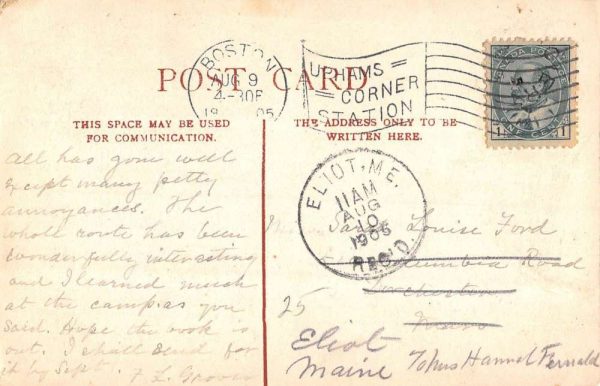 BOSTON
AUG 9
4-30P
1905
UPHAMS
CORNER
STATION
CANADA POSTAGE
1 ONE CENT 1
POST CARD
THIS SPACE MAY BE USED
FOR COMMUNICATION.
THE ADDRESS ONLY TO BE
WRITTEN HERE.
All has gone well
except many petty
annoyances. The
whole route has been
wonderfully interesting
and I learned much
at the camp as you
said. Hope the book is
out. I shall send for
it by Sept.
F. L.
ELIOT, ME.
11 AM
AUG
10
REC'D.
Sarah Louise Ford
Columbia Road
Dorchester
25
Eliot
Maine